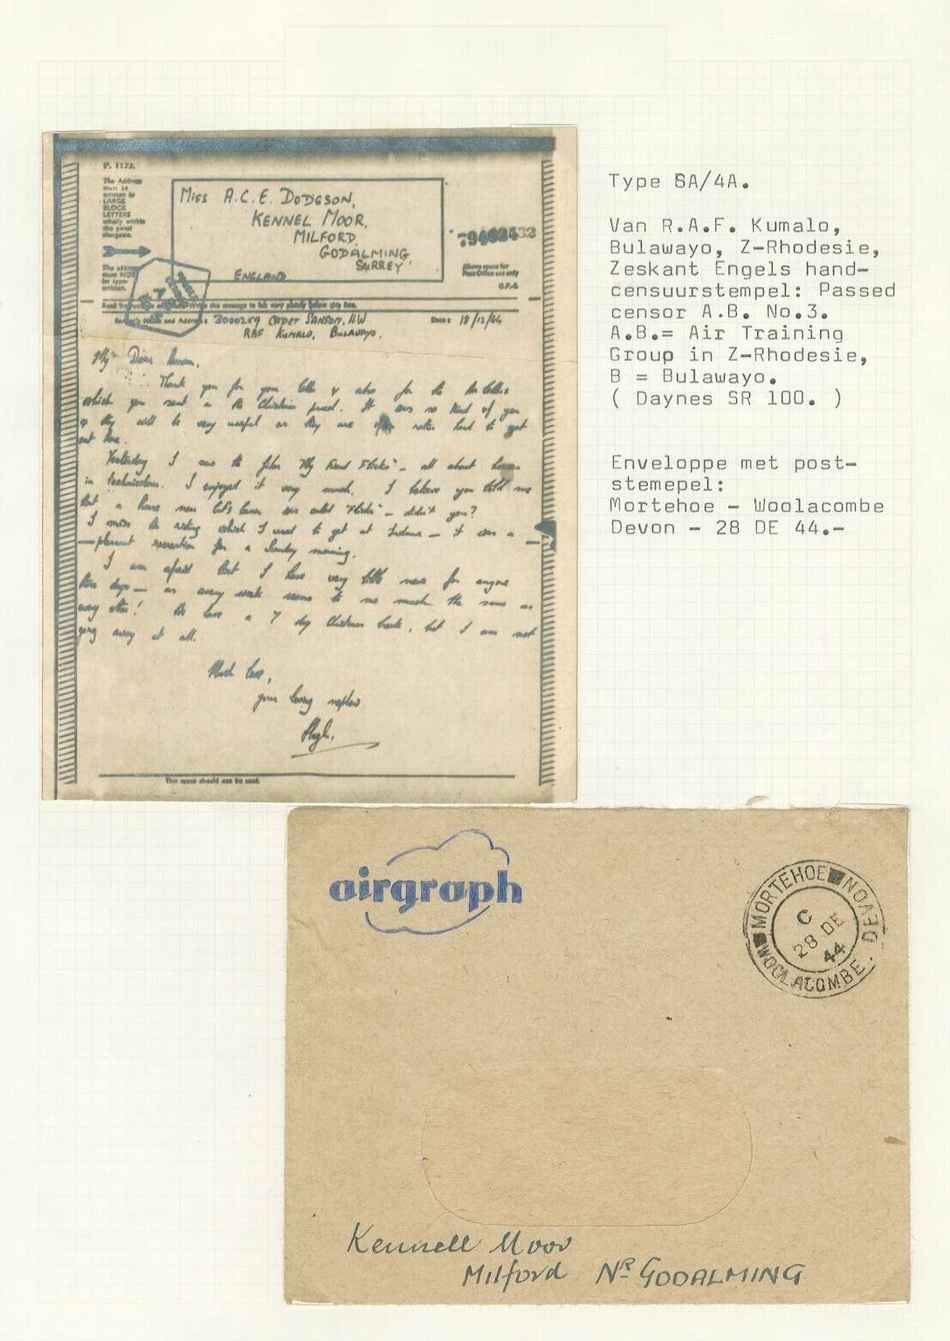 P. 1172.
The Address
must be
written in
LARGE
BLOCK
LETTERS
wholly within
the panel
alongside.
The address
must NOT
be type-
written.
Miss A.C.E. DODGSON,
KENNEL MOOR,
MILFORD,
GODALMING
SURREY
ENGLAND
Post Office use only
Write the message to be very plainly below this line.
3000259 CADET SANSON, H.W
RAF KUMALO, BULAWAYO.
Date: 18/12/44
My Dear
Thank you for your letter & also for the
which you sent in the Christmas parcel. It was so kind of you
& they will be very useful as they are often rather hard to get
out here.
Yesterday I saw the film "My Friend Flicka" - all about horses
in technicolour. I enjoyed it very much. I believe you told me
that a horse near was called "Flicka" - didn't you?
I miss the riding which I used to get at - it was a
pleasant recreation for a Sunday morning.
I am afraid that I have very little news for anyone
these days - as every week seems to me much the same as
any other! We have a 7 day Christmas break, but I am not
going away at all.
Much love,
your loving nephew
Hugh.
This space should not be used.
Type SA/4A.
Van R.A.F. Kumalo,
Bulawayo, Z-Rhodesie,
Zeskant Engels hand-
censuurstempel: Passed
censor A.B. No.3.
A.B.= Air Training
Group in Z-Rhodesie,
B = Bulawayo.
( Daynes SR 100. )
Enveloppe met post-
stemepel:
Mortehoe - Woolacombe
Devon - 28 DE 44.-
airgraph
MORTEHOE
WOOLACOMBE. DEVON
C
28 DE
44
Kennell Moor
Milford Nr GODALMING